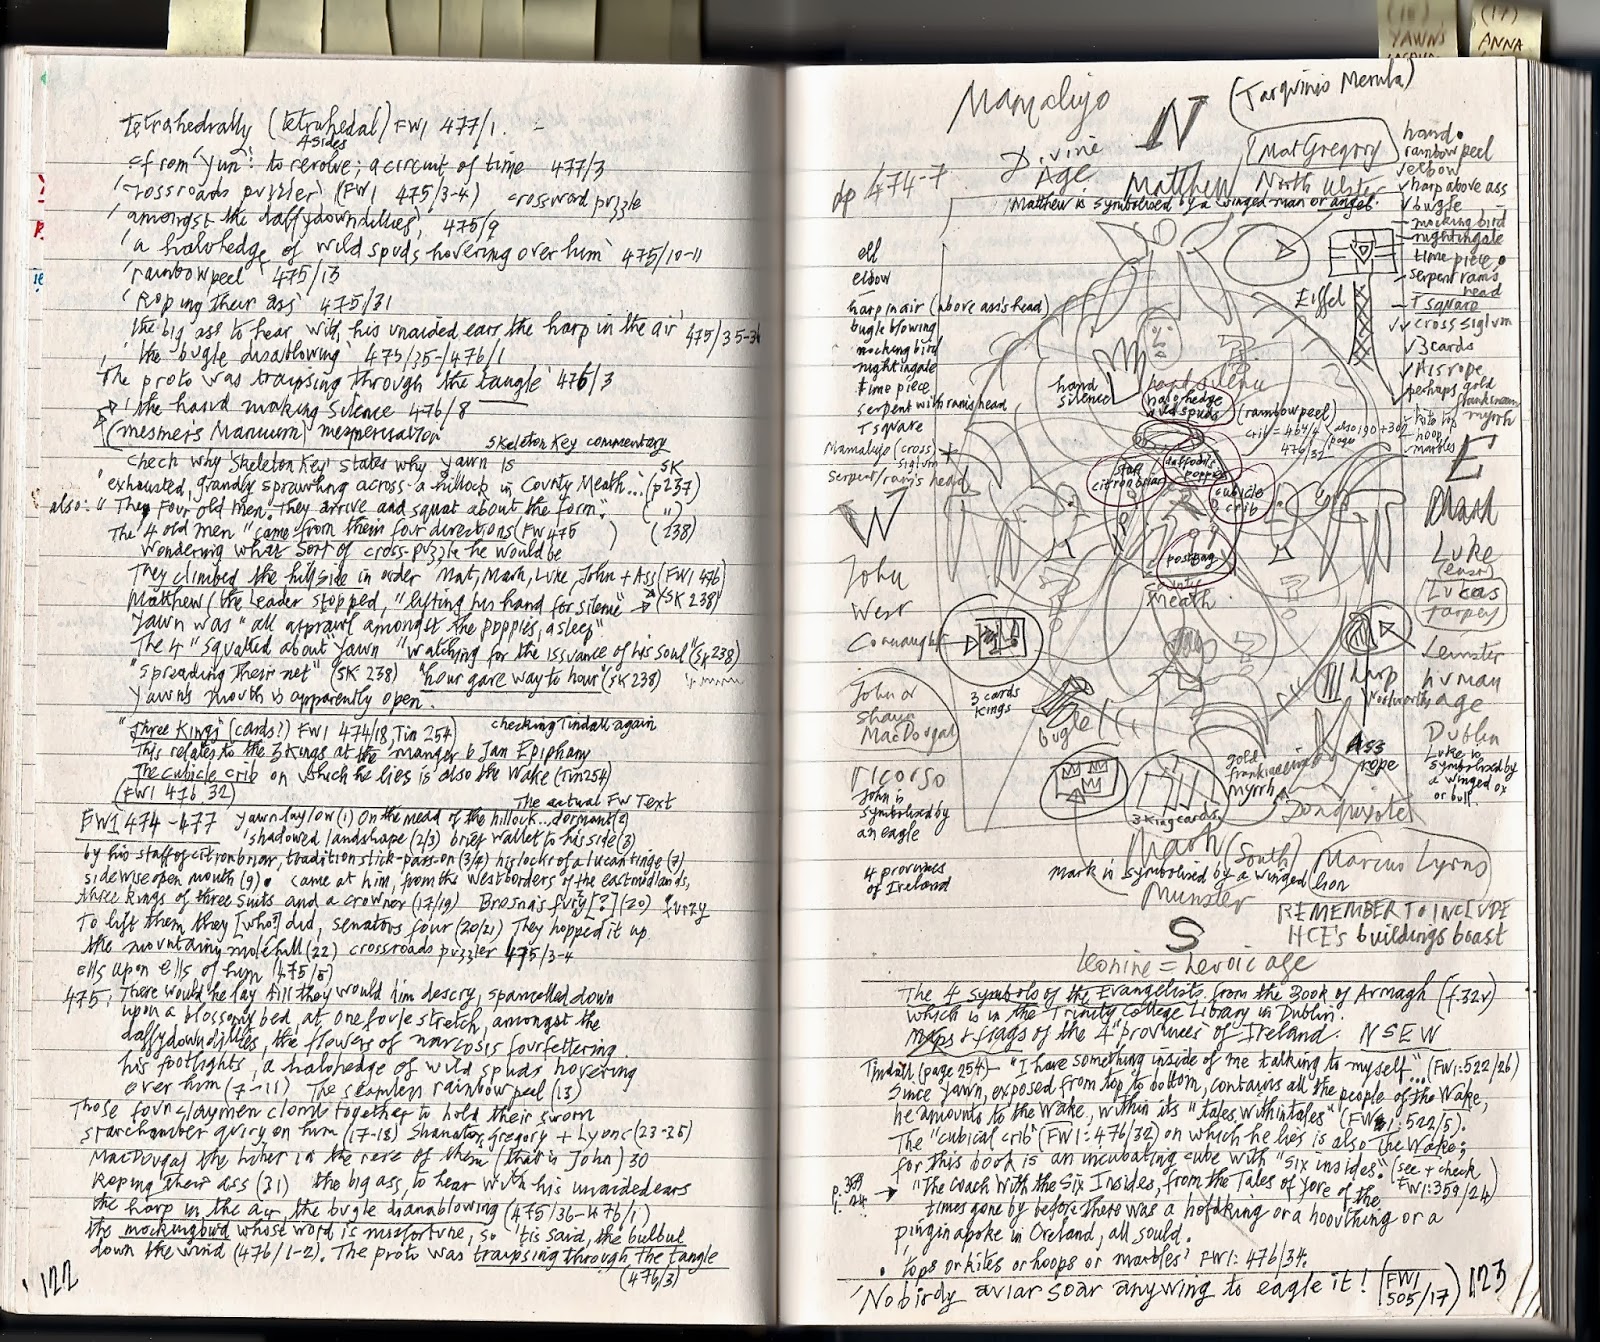 Tetrahedrally (tetrahedal) FW1 477/1.
4 sides
cf from 'Yun': to revolve; a circuit of time 477/3
'crossroads puzzler' (FW1 475/3-4) crossword puzzle
'amongst the daffydowndillies', 475/9
'a halohedge of wild spuds hovering over him' 475/10-11
'rainbowpeel' 475/13
'Roping their ass' 475/31
'the big ass to hear with his unaided ears the harp in the air' 475/35-36
'the bugle dianablowing' 475/35-/476/1
'The proto was traipsing through the tangle' 476/3
'the hand making silence 476/8
(mesmer's Manuum) mesmerisation
Skeleton Key commentary
Check why 'Skeleton Key' states why Yawn is
"exhausted, grandly sprawling across a hillock in County Meath... (p237)
SK
also: "They Four old men. They arrive and squat about the form". (")
The 4 old men "came from their four directions (FW 475 ) (238)
wondering what sort of cross-puzzle he would be
They climbed the hillside in order Mat, Mark, Luke, John + Ass (FW1 476)
Matthew/the leader stopped, "lifting his hand for silence" → (SK 238)
Yawn was "all asprawl amongst the poppies, asleep"
The 4 "squatted about Yawn "watching for the issuance of his soul" (SK 238)
"spreading their net" (SK 238) "hour gave way to hour" (SK 238)
Yawn's mouth is apparently open.
"Three Kings" (cards?) FW1 474/18, Tin 254) checking Tindall again
This relates to the 3 Kings at the manger 6 Jan Epiphany
The cubicle crib on which he lies is also the Wake (Tin 254)
(FW1 476 32)
The actual FW Text
FW1 474-477 Yawn lay low (1) On the mead of the hillock..., dormant (2)
'shadowed landshape (2/3) brief wallet to his side (3)
by his staff of citron briar, tradition stick-pass-on (3/4) his locks of a lucan tinge (7)
sidewise open mouth (9). came at him, from the westborders of the eastmidlands,
three kings of three suits and a crowner (17/19) Brosna's furzy [?] (20) furzy
To lift them they [who?] did, senators four (20/21) They hopped it up
the mountainy molehill (22) crossroads puzzler 475/3-4
ells upon ells of him (475/5)
475: There would he lay till they would him descry, spancelled down
upon a blossomy bed, at one foule stretch, amongst the
daffydowndillies, the flowers of narcosis fourfettering
his footlights, a halohedge of wild spuds hovering
over him (7-11) The seamless rainbowpeel (13)
Those four claymen clomb together to hold their sworn
starchamber quiry on him (17-18) Shanator Gregory + Lyons (23-35)
MacDougal the hiker in the rere of them (that is John) 30
Roping their ass (31) the big ass, to hear with his unaided ears
the harp in the air, the bugle dianablowing (475/36-476/1)
the mockingbird whose word is misfortune, so 'tis said, the bulbul
down the wind (476/1-2). The proto was traipsing through the tangle
(476/3)
122
(16)
YAWNS
(17)
ANNA
Mamalujo
N
(Tarquinio Merula)
pp 474-7
Divine
Age
Matthew
MatGregory
North Ulster
Matthew is symbolised by a winged man or angel.
ell
elbow
harp in air (above ass's head)
bugle blowing
mocking bird
nightingale
time piece
serpent with ram's head
T square
Mamalujo (cross) siglum
Serpent/ram's head
hand
rainbow peel
elbow
harp above ass
bugle
mocking bird
nightingale
time piece
serpent ram's
head
T square
cross siglum
3 cards
Ass rope
perhaps gold
myrrh
hoop
marbles
Eiffel
hand
silence
halo hedge
wild spuds
(rainbowpeel)
476/32
page
staff
citron briar
daffodils
poppies
cubicle
crib
postbag
county
Meath
W
John
West
Connaught
John or
Shaun
MacDougal
ricorso
John is
symbolised by
an eagle
4 provinces
of Ireland
3 cards
kings
bugle
E
Luke
(East)
Lukas
Tarpey
Leinster
human
age
Dublin
Luke is
symbolised by
a winged ox
or bull.
harp
Ass
rope
gold
frankincense
myrrh
3 King cards
Don quixote
Mark (South)
Marcus Lyons
Mark is symbolised by a winged lion
Munster
S
leonine = heroic age
REMEMBER TO INCLUDE
HCE's buildings boast
The 4 symbols of the Evangelists from the Book of Armagh (f.32v)
which is in the Trinity College Library in Dublin.
Maps + flags of the 4 provinces of Ireland. N S E W
Tindall (page 254) - "I have something inside of me talking to myself"... (FW1:522/26)
Since Yawn, exposed from top to bottom, contains all the people of the Wake,
he amounts to the Wake, within its "tales within tales" (FW1:522/5).
The "cubical crib" (FW1:476/32) on which he lies is also The Wake;
for this book is an incubating cube with "six insides." (see + check
FW1:359/24)
p.359
l.24
→ "The Coach With the Six Insides, from the Tales of Yore of the
times gone by before there was a hofdking or a hoovthing or a
pinginapoke in Oreland, all sould.
. 'tops or kites or hoops or marbles' FW1: 476/34.
'Nobirdy aviar soar anywing to eagle it! (FW1 505/17)
123